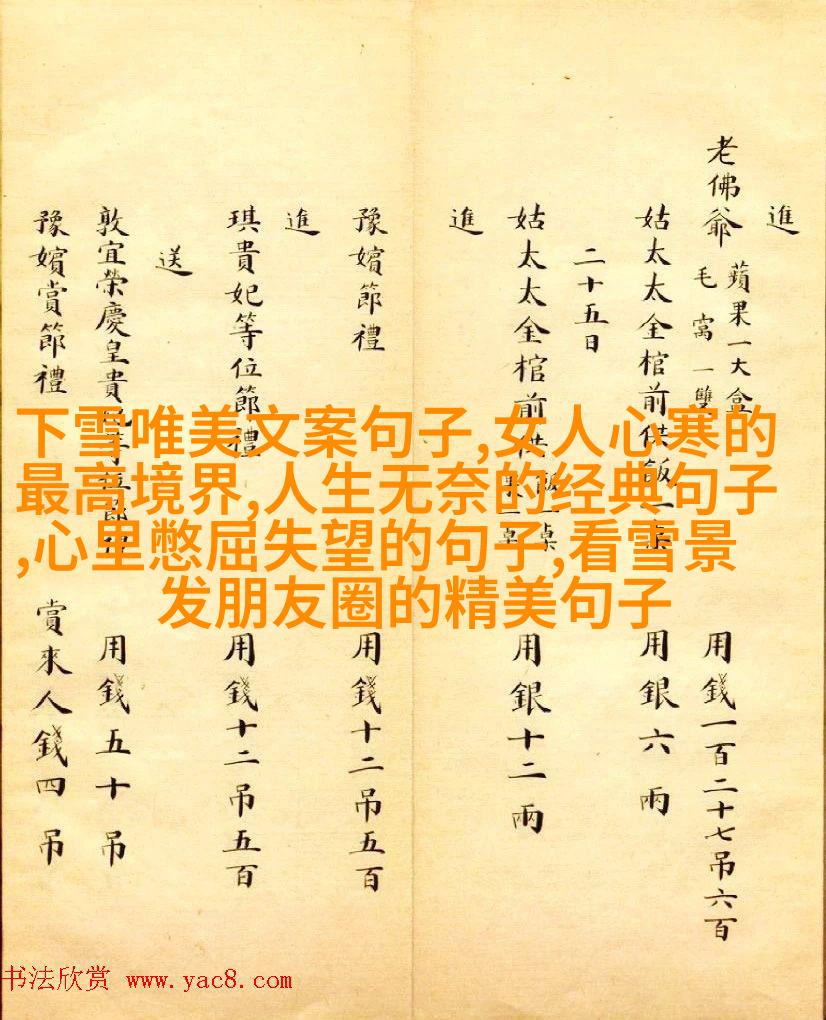 進
老佛爺 蘋果一大盒
毛窩一雙
用錢一百二十七吊六百
姑太太金棺前供飯一桌 用銀六兩
二十五日
姑太太金棺前供飯一桌
果一桌
用銀十二兩
進
豫嬪節禮 用錢十二吊五百
進
琪貴妃等位節禮 用錢十二吊五百
送
敦宜榮慶皇貴妃等位節禮 用錢五十吊
豫嬪賞節禮 賞來人錢四吊
下雪唯美文案句子,女人心寒的
最高境界,人生无奈的经典句子
,心里憋屈失望的句子,看雪景
发朋友圈的精美句子
书法欣赏 www.yac8.com